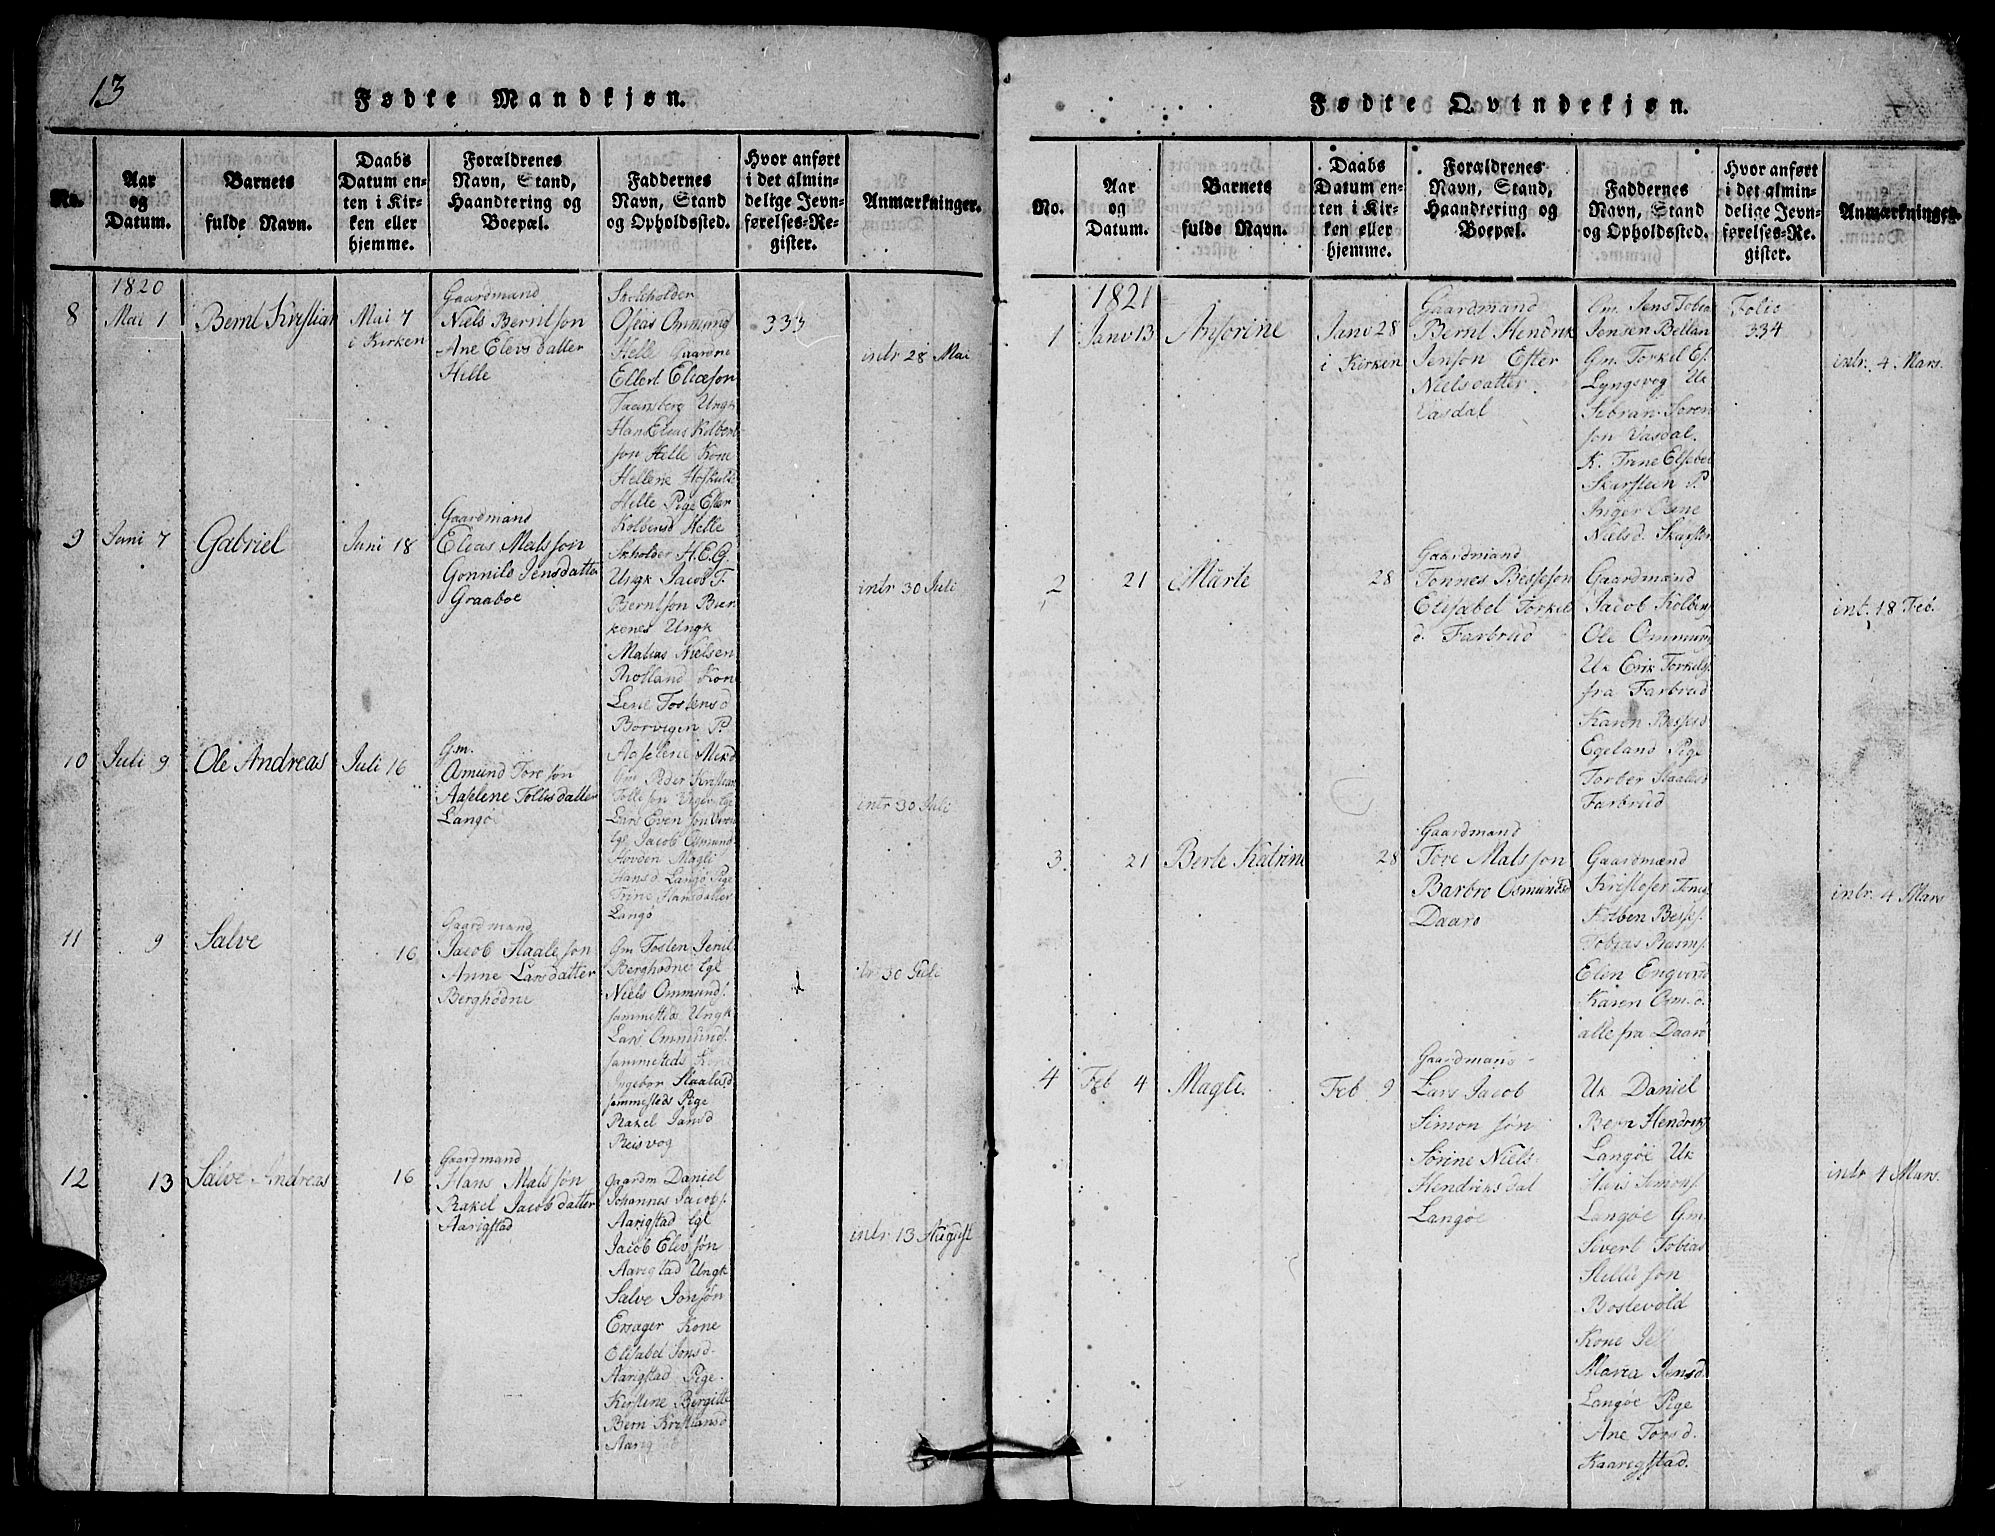 13
Fødte Mandkjøn.
No.
Aar
og
Datum.
Barnets
fulde Navn.
Daabs
Datum en-
ten i Kir-
ken eller
hjemme.
Forældrenes
Navn, Stand,
Haandtering og
Boepæl.
Faddernes
Navn, Stand
og Opholdssted.
Hvor anført
i det almin-
delige Jevn-
førelses-Re-
gister.
Anmærkninger.
1820
8
Mai 1
Bernt Kristian
Mai 7
i Kirken
Gaardmand
Niels Berntsøn
Ane Elevsdatter
Helle
Oseas Ommund
Helle Gaardne
Ellert Eliæsøn
Taansberg Ungk
Han Eleas Kolbent
søn Helle Kone
Hellene
Helle Pige Ester
Kolbensd Helle
333
intr 28 Mai
9
Juni 7
Gabriel
Juni 18
Gaardmand
Eleas Matssøn
Gonnild Jensdatter
Graaboe
Skholder H.E.G.
Ungk Jacob T.
Berntsøn Bier
kenes Ungk
Matias Nielsen
Rotland Kon
Lene Tostensd
Borvigen P.
intr 30 Juli
10
Juli 9
Ole Andreas
Juli 16
G.m.
Asmund Toresøn
Aaselene Tollisdatter
Langøe
Gm Peder Kristian
Lars Even søn
lgl Jacob Osmund
Hovden Magli
Hansd Langø Pige
Trine Hansdatter
Langø
intr 30 Juli
11
9
Salve
16
Gaardmand
Jacob Staalesøn
Anne Larsdatter
Berghødne
Gm Tosten
Berghødne lgl
Niels Ommunds.
sammesteds Ungk
Lars Ommunds.
sammesteds Kone
Ingebor Staalesd
sammesteds Pige
Rakel Jansd
Reisvog
itr 30 Juli
12
13
Salve Andreas
16
Gaardmand
Hans Matssøn
Rakel Jacobsdatter
Aarigstad
gaardm Daniel
Johannes Jacobs.
Aarigstad lgl
Jacob Elevsøn
Aarigstad Ungk
Salve Jonsøn
Ersager Kone
Elisabel Jonsd.
Aarigstad Pige.
Kirstine Bergitte
Bern Kristiansd
Aarig
intr 13 August
Fødte Qvindekjøn.
No.
Aar
og
Datum.
Barnets
fulde Navn.
Daabs
Datum en-
ten i Kir-
ken eller
hjemme.
Forældrenes
Navn, Stand,
Haandtering og
Boepæl.
Faddernes
Navn, Stand
og Opholdssted.
Hvor anført
i det almin-
delige Jevn-
førelses-Re-
gister.
Anmærkninger.
1821
1
Janv 13
Janv 28
i Kirken
Gaardmand
Bernt Hendrik
Jensøn Ester
Nielsdatter
Vasdal
Gm. Jens Tobia
Jensen
Gm. Torkel
Lyngsvog Uk
Sebran Soren
søn Vasdal.
K. Trine Elsebet
Skarsteen P.
Inger Oline
Nielsd. Skarsten
Folio
334
intr. 4 Mars.
2
21
Marte
28
Gaardmand
Tonnes Bessesøn
Elisabel Torkel
d. Farbrud
Gaardmænd
Jacob Kolbens
Ole Ommund
Uk Erik Torkels.
fra Farbrud
Karen Bessesd
Egeland Pige
Torber Staalesd
Farbrud
int. 18 Feb.
3
21
Berte Katrine
28
Gaardmand
Tore Matssøn
Barbro Osmundsd
Daaro
Gaardmænd
Kristofer
Kolben Besses.
Tobias Rasms.
Elin
Karen Osm.d.
alle fra Daaro
intr. 4 Mars
4
Feb 4
Magli.
Feb 9
Gaardmand
Lars Jacob
Simonsøn
Sørine Niels
Hendriksdal
Langøe
Uk Daniel
Bern Hendriks
Langøe Uk
Simons.
Langøe G.m.
Sivert Tobias
Stellusøn
Bostevold
Kone
Maria Jensd.
Langøe Pige
Ane Torsd.
Kaarigstad.
intr 4 Mars.